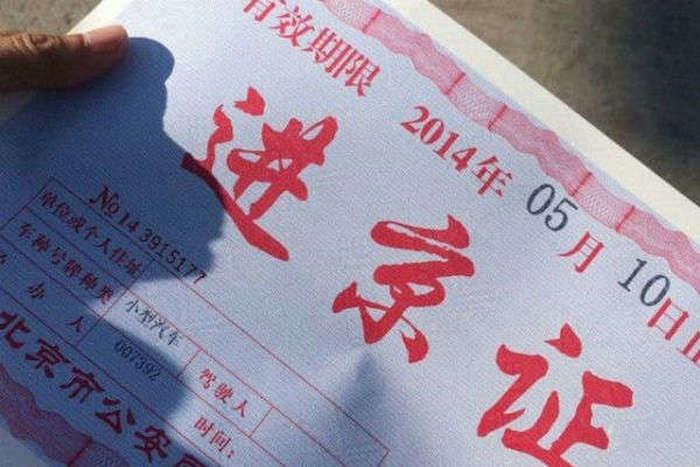 有效期限 2014年05月10日止
进京证
No14 3915177
单位或个人住址
车种号牌种类 小型汽车 驾驶人
办人 007392 时间：
北京市公安